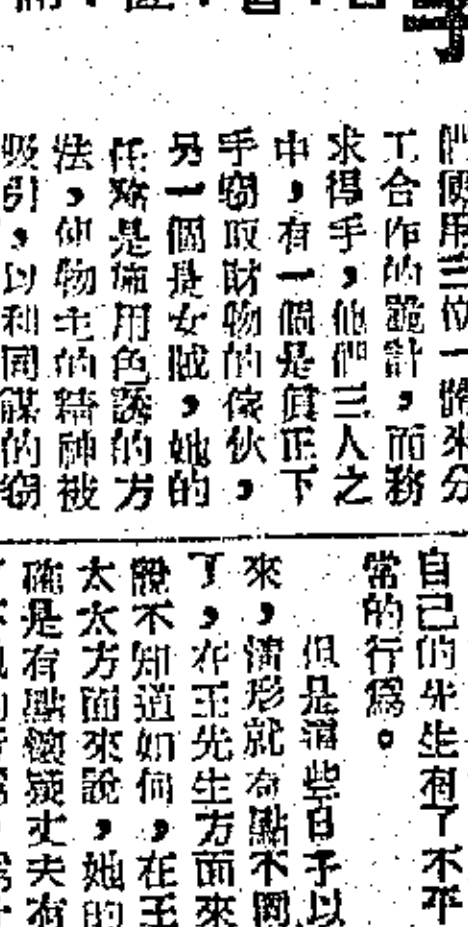 們便用三位一體來分
工合作的詭計，而務
求得手，他們三人之
中，有一個是眞正下
手竊取財物的傢伙，
另一個是女賊，她的
任務是施用色誘的方
法，使物主的精神被
吸引，以利同謀的竊
自己的先生有了不平
常的行爲。
但是這些日子以
來，情形就有點不同
了，在王先生方面來
說不知道如何，在王
太太方面來說，她的
確是有點懷疑丈夫有